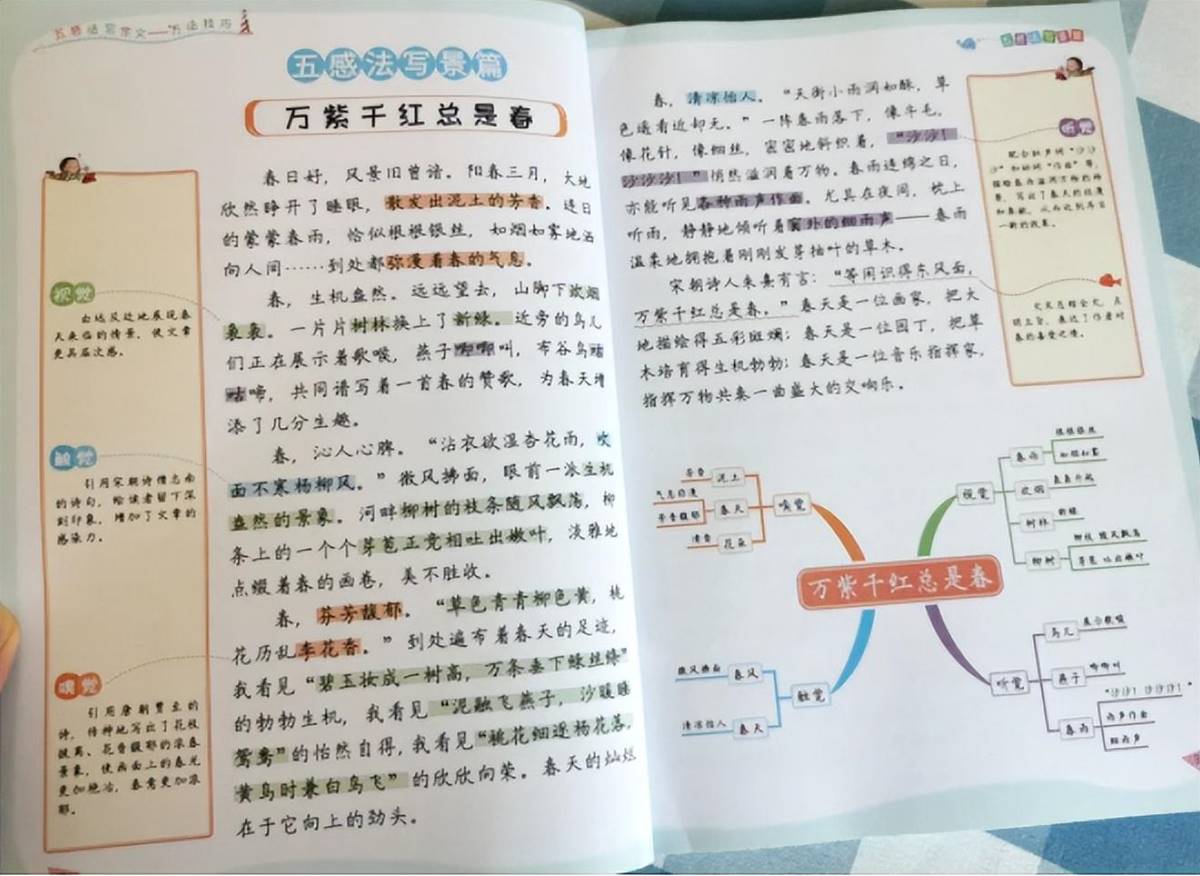 五感法写作文——方法技巧
五感法写景篇
万紫千红总是春
春日好，风景旧曾谙。阳春三月，大地
欣然睁开了睡眼，散发出泥土的芳香。连日
的蒙蒙春雨，恰似根根银丝，如烟如雾地洒
向人间……到处都弥漫着春的气息。
春，生机盎然。远远望去，山脚下炊烟
袅袅。一片片树林换上了新绿。近旁的鸟儿
们正在展示着歌喉，燕子唧唧叫，布谷鸟咕
咕啼，共同谱写着一首春的赞歌，为春天增
添了几分生趣。
春，沁人心脾。“沾衣欲湿杏花雨，吹
面不寒杨柳风。”微风拂面，眼前一派生机
盎然的景象。河畔柳树的枝条随风飘荡，柳
条上的一个个芽苞正竞相吐出嫩叶，淡雅地
点缀着春的画卷，美不胜收。
春，芬芳馥郁。“草色青青柳色黄，桃
花历乱李花香。”到处遍布着春天的足迹，
我看见“碧玉妆成一树高，万条垂下绿丝绦”
的勃勃生机，我看见“泥融飞燕子，沙暖睡
鸳鸯”的怡然自得，我看见“桃花细逐杨花落，
黄鸟时兼白鸟飞”的欣欣向荣。春天的灿烂
在于它向上的劲头。
视觉
由远及近地展现春
天来临的情景，使文章
更具层次感。
触觉
引用宋朝诗僧志南
的诗句，给读者留下深
刻印象，增加了文章的
感染力。
嗅觉
引用唐朝贾至的
诗，传神地写出了花枝
披离、花香馥郁的浓春
景象，使画面上的春光
更加艳冶，春意更加浓
郁。
五感法写景篇
春，清凉怡人。“天街小雨润如酥，草
色遥看近却无。”一阵春雨落下，像牛毛，
像花针，像细丝，密密地斜织着，“沙沙！
沙沙沙！”悄然滋润着万物。春雨连绵之日，
亦能听见各种雨声作画。尤其在夜间，枕上
听雨，静静地倾听着窗外的细雨声——春雨
温柔地拥抱着刚刚发芽抽叶的草木。
宋朝诗人朱熹有言：“等闲识得东风面，
万紫千红总是春。”春天是一位画家，把大
地描绘得五彩斑斓；春天是一位园丁，把草
木培育得生机勃勃；春天是一位音乐指挥家，
指挥万物共奏一曲盛大的交响乐。
听觉
配合拟声词“沙沙
沙”和动词“作画”等，
描绘春雨滋润万物的场
景，写出了春天的轻盈
一新的效果。
文末总结全文，点
明主旨，表达了作者对
春的喜爱之情。
万紫千红总是春
嗅觉
泥土
芳香
春天
气息弥漫
芳香馥郁
花朵
清香
视觉
春雨
根根银丝
如烟如雾
炊烟
袅袅升起
树林
新绿
柳树
柳枝 随风飘荡
芽苞 吐出嫩叶
触觉
春风
微风拂面
春天
清凉怡人
听觉
鸟儿
展示歌喉
燕子
唧唧叫
春雨
“沙沙！沙沙沙！”
雨声作画
细雨声